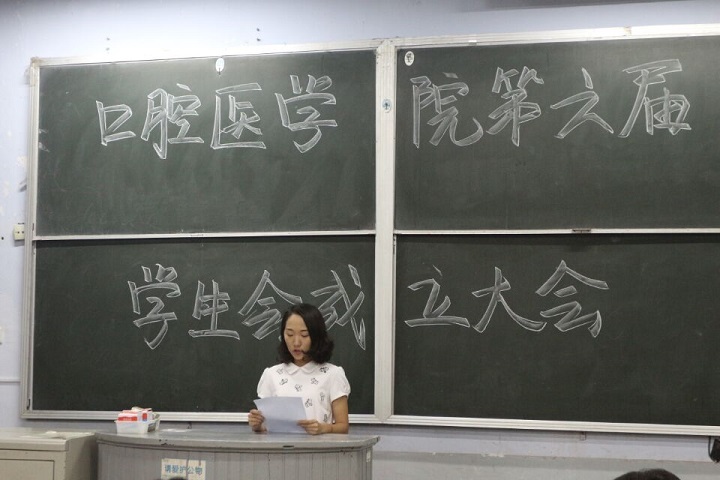 口腔医学院第六届
学生会成立大会
请爱护公物